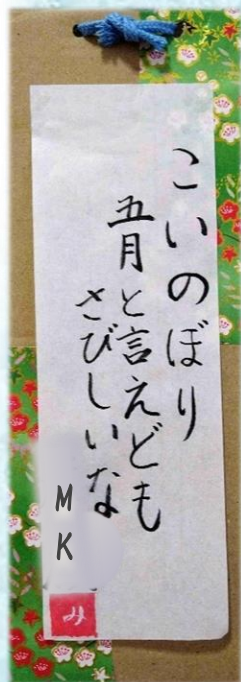 こいのぼり
五月と言えども
さびしいな
M
K
み